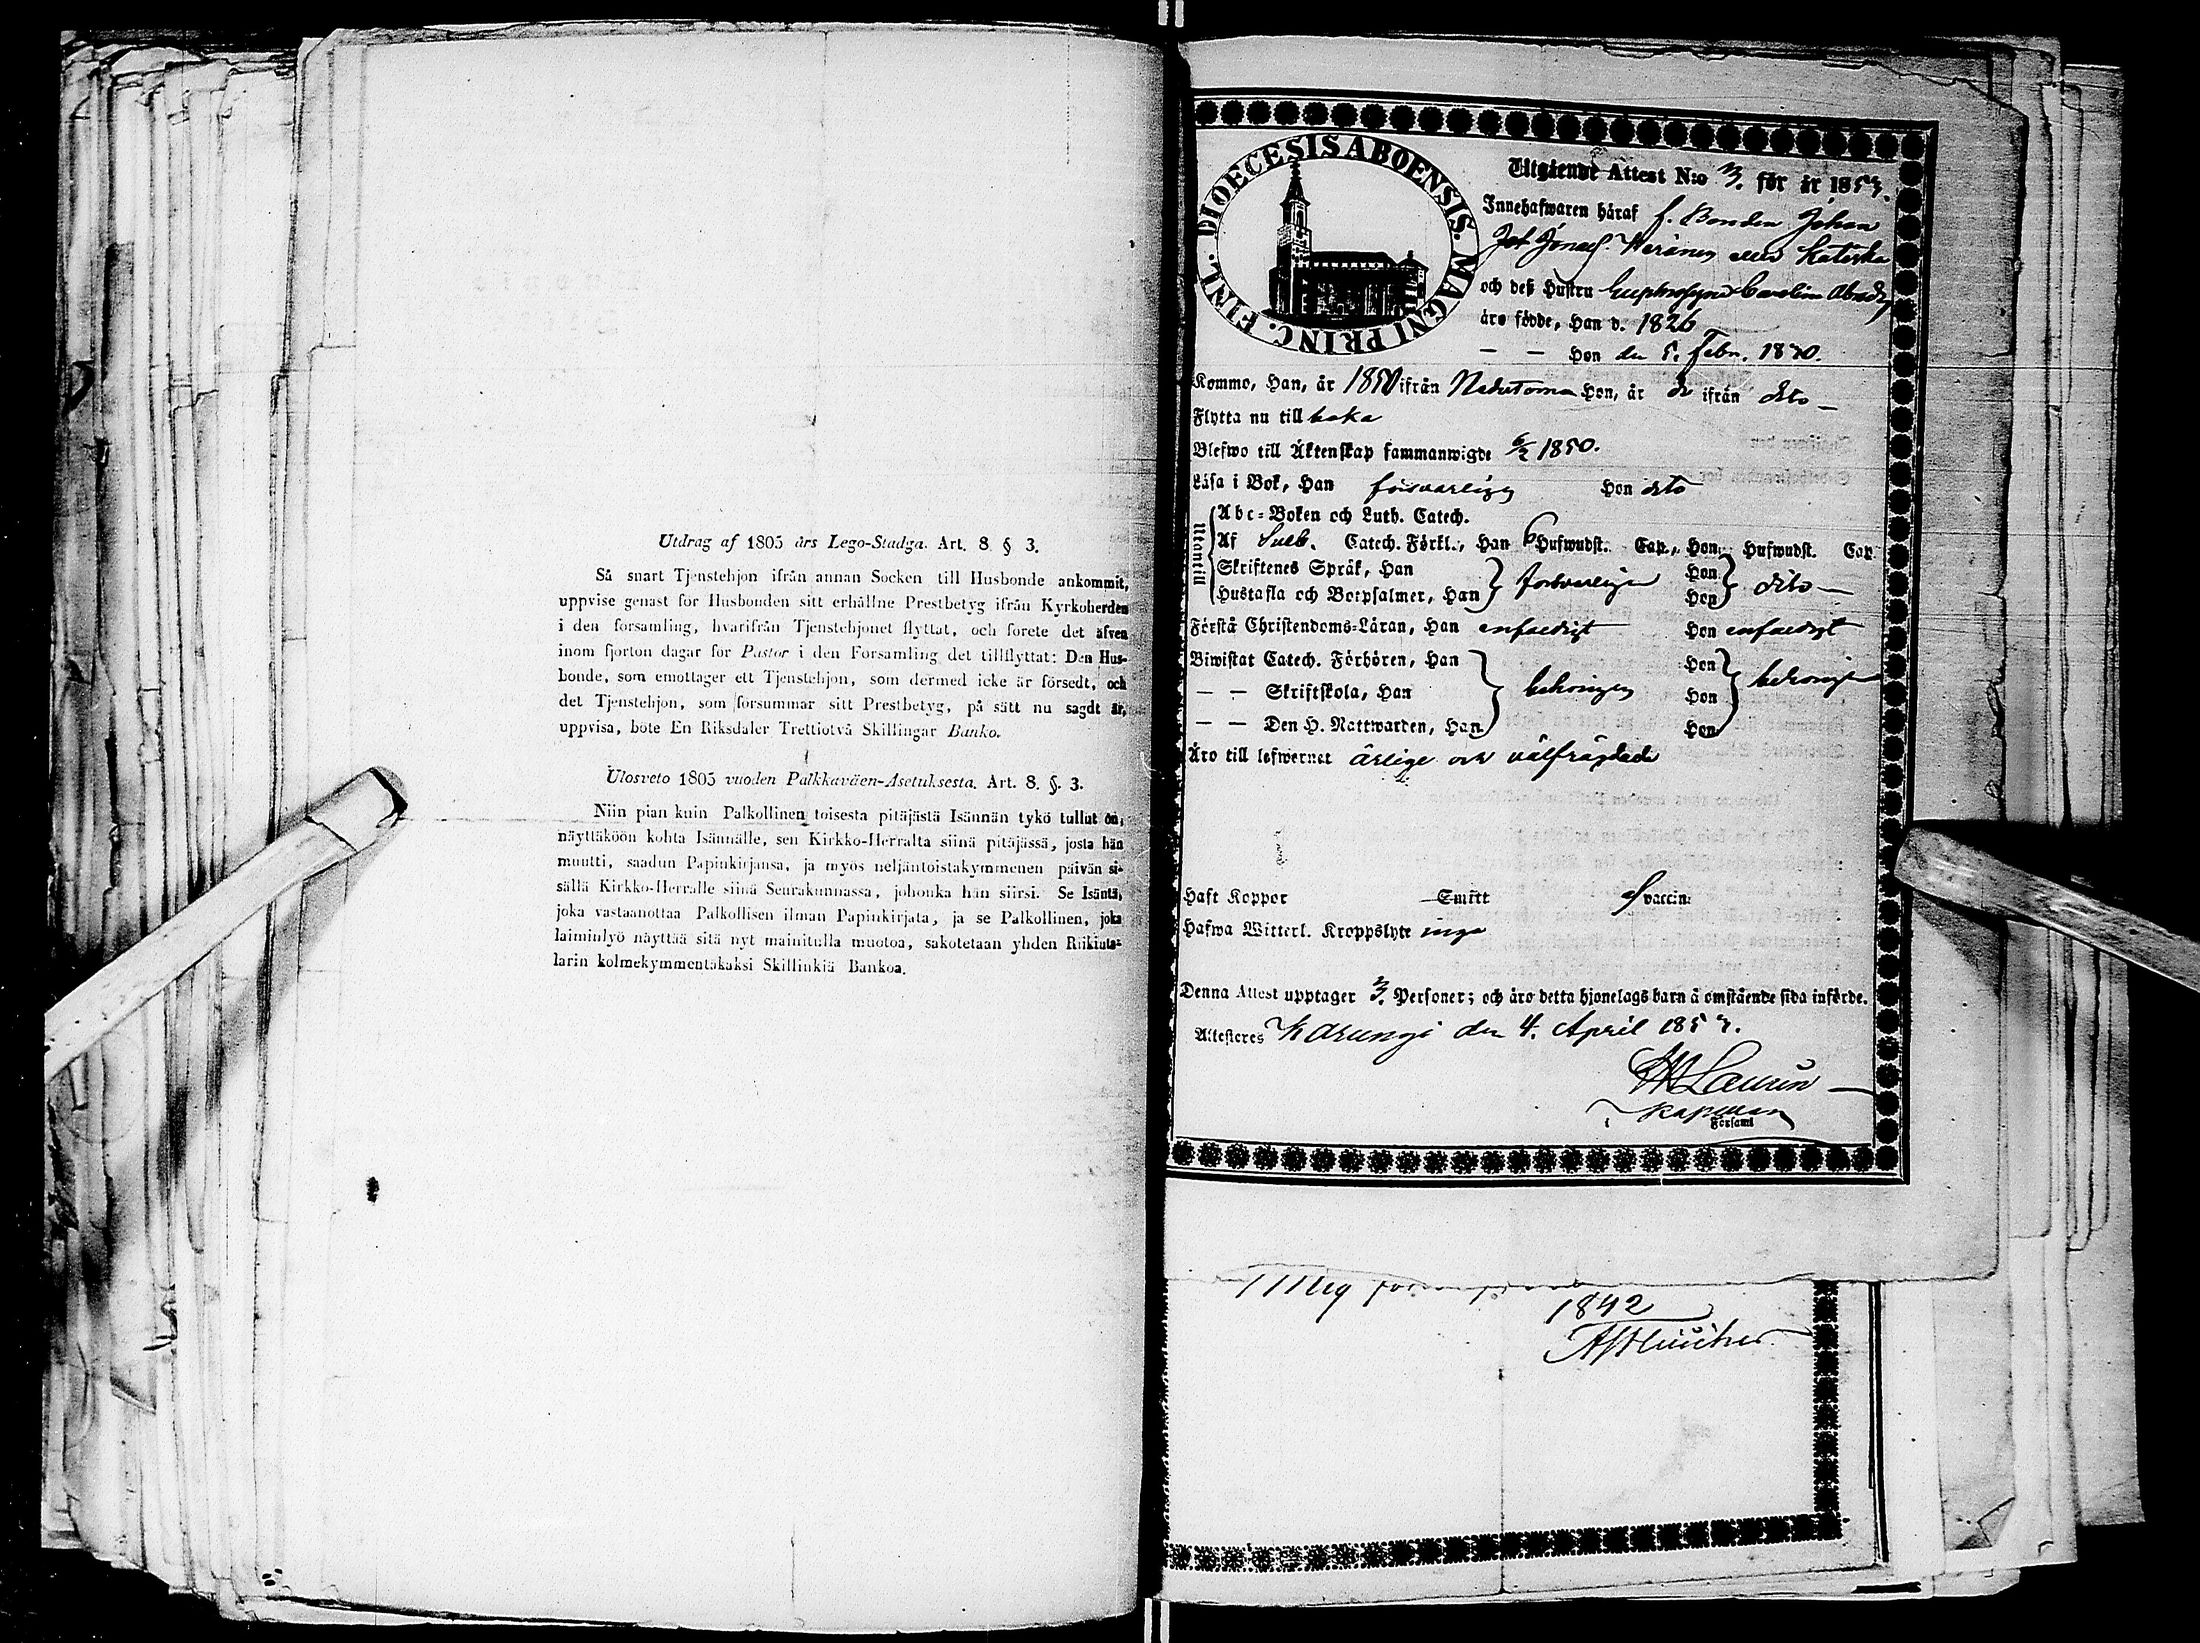 Utdrag af 1805 års Lego-Stadga. Art. 8 § 3.
Så snart Tjenstehjon ifrån annan Socken till Husbonde ankommit,
uppvise genast för Husbonden sitt erhållne Prestbetyg ifrån Kyrkoherden
i den forsamling, hvarifrån Tjenstehjonet flyttat, och forete det äfven
inom fjorton dagar för Pastor i den Forsamling det tillflyttat: Den Hus-
bonde, som emottager ett Tjenstehjon, som dermed icke är försedt, och
det Tjenstehjon, som forsummar sitt Prestbetyg, på sätt nu sagdt är,
uppvisa, böte En Riksdaler Trettiotvå Skillingar Banko.
Ulosveto 1805 vuoden Palkkaväen-Asetuksesta. Art. 8. §. 3.
Niin pian kuin Palkollinen toisesta pitäjästä Isännän tykö tullut on,
näyttäköön kohta Isännälle, sen Kirkko-Herralta siinä pitäjässä, josta hän
muutti, saadun Papinkirjansa, ja myös neljäntoistakymmenen päivän si-
sällä Kirkko-Herralle siinä Seurakunnassa, johonka hän siirsi. Se Isäntä,
joka vastaanottaa Palkollisen ilman Papinkirjata, ja se Palkollinen, joka
laiminlyö näyttää sitä nyt mainitulla muotoa, sakotetaan yhden Riikinta-
larin kolmekymmentäkaksi Skillinkiä Bankoa.
DIOECESIS ABOENSIS. MAGNI PRINC. FINL.
Utgående Attest N:o 3. för år 1853.
Innehafwaren häraf f. Bonden Johan
och deß Hustru Caroline
äro födde, Han d. 1826
— — Hon den 5. Febr. 1830.
Kommo, Han, år 1850 ifrån Hon, år do ifrån dito —
Flytta nu till baka
Blefwo till Äktenskap sammanwigde 6/2 1850.
Läsa i Bok, Han försvarligen Hon dito
Utantill
Abc-Boken och Luth. Catech.
Af Sveb. Catech. Förkl., Han 6 Hufwudst. Cap., Hon, Hufwudst. Cap
Skriftenes Språk, Han försvarligen Hon dito —
Hustafla och Botpsalmer, Han Hon
Förstå Christendoms-Läran, Han enfaldigt Hon enfaldigt
Biwistat Catech. Förhören, Han Hon
— — Skriftskola, Han behörigen Hon behörigen
— — Den H. Nattwarden, Han Hon
Äro till lefwernet ärlige och välfrägdade
Haft Koppor Smitt vaccin:
Hafwa Witterl. Kroppslyte inga
Denna Attest upptager 3. Personer; och äro detta hjonelags barn å omstående sida införde.
Attesteres Karungi den 4. April 1853.
Laurin —
Kapellan
i Församl
1842